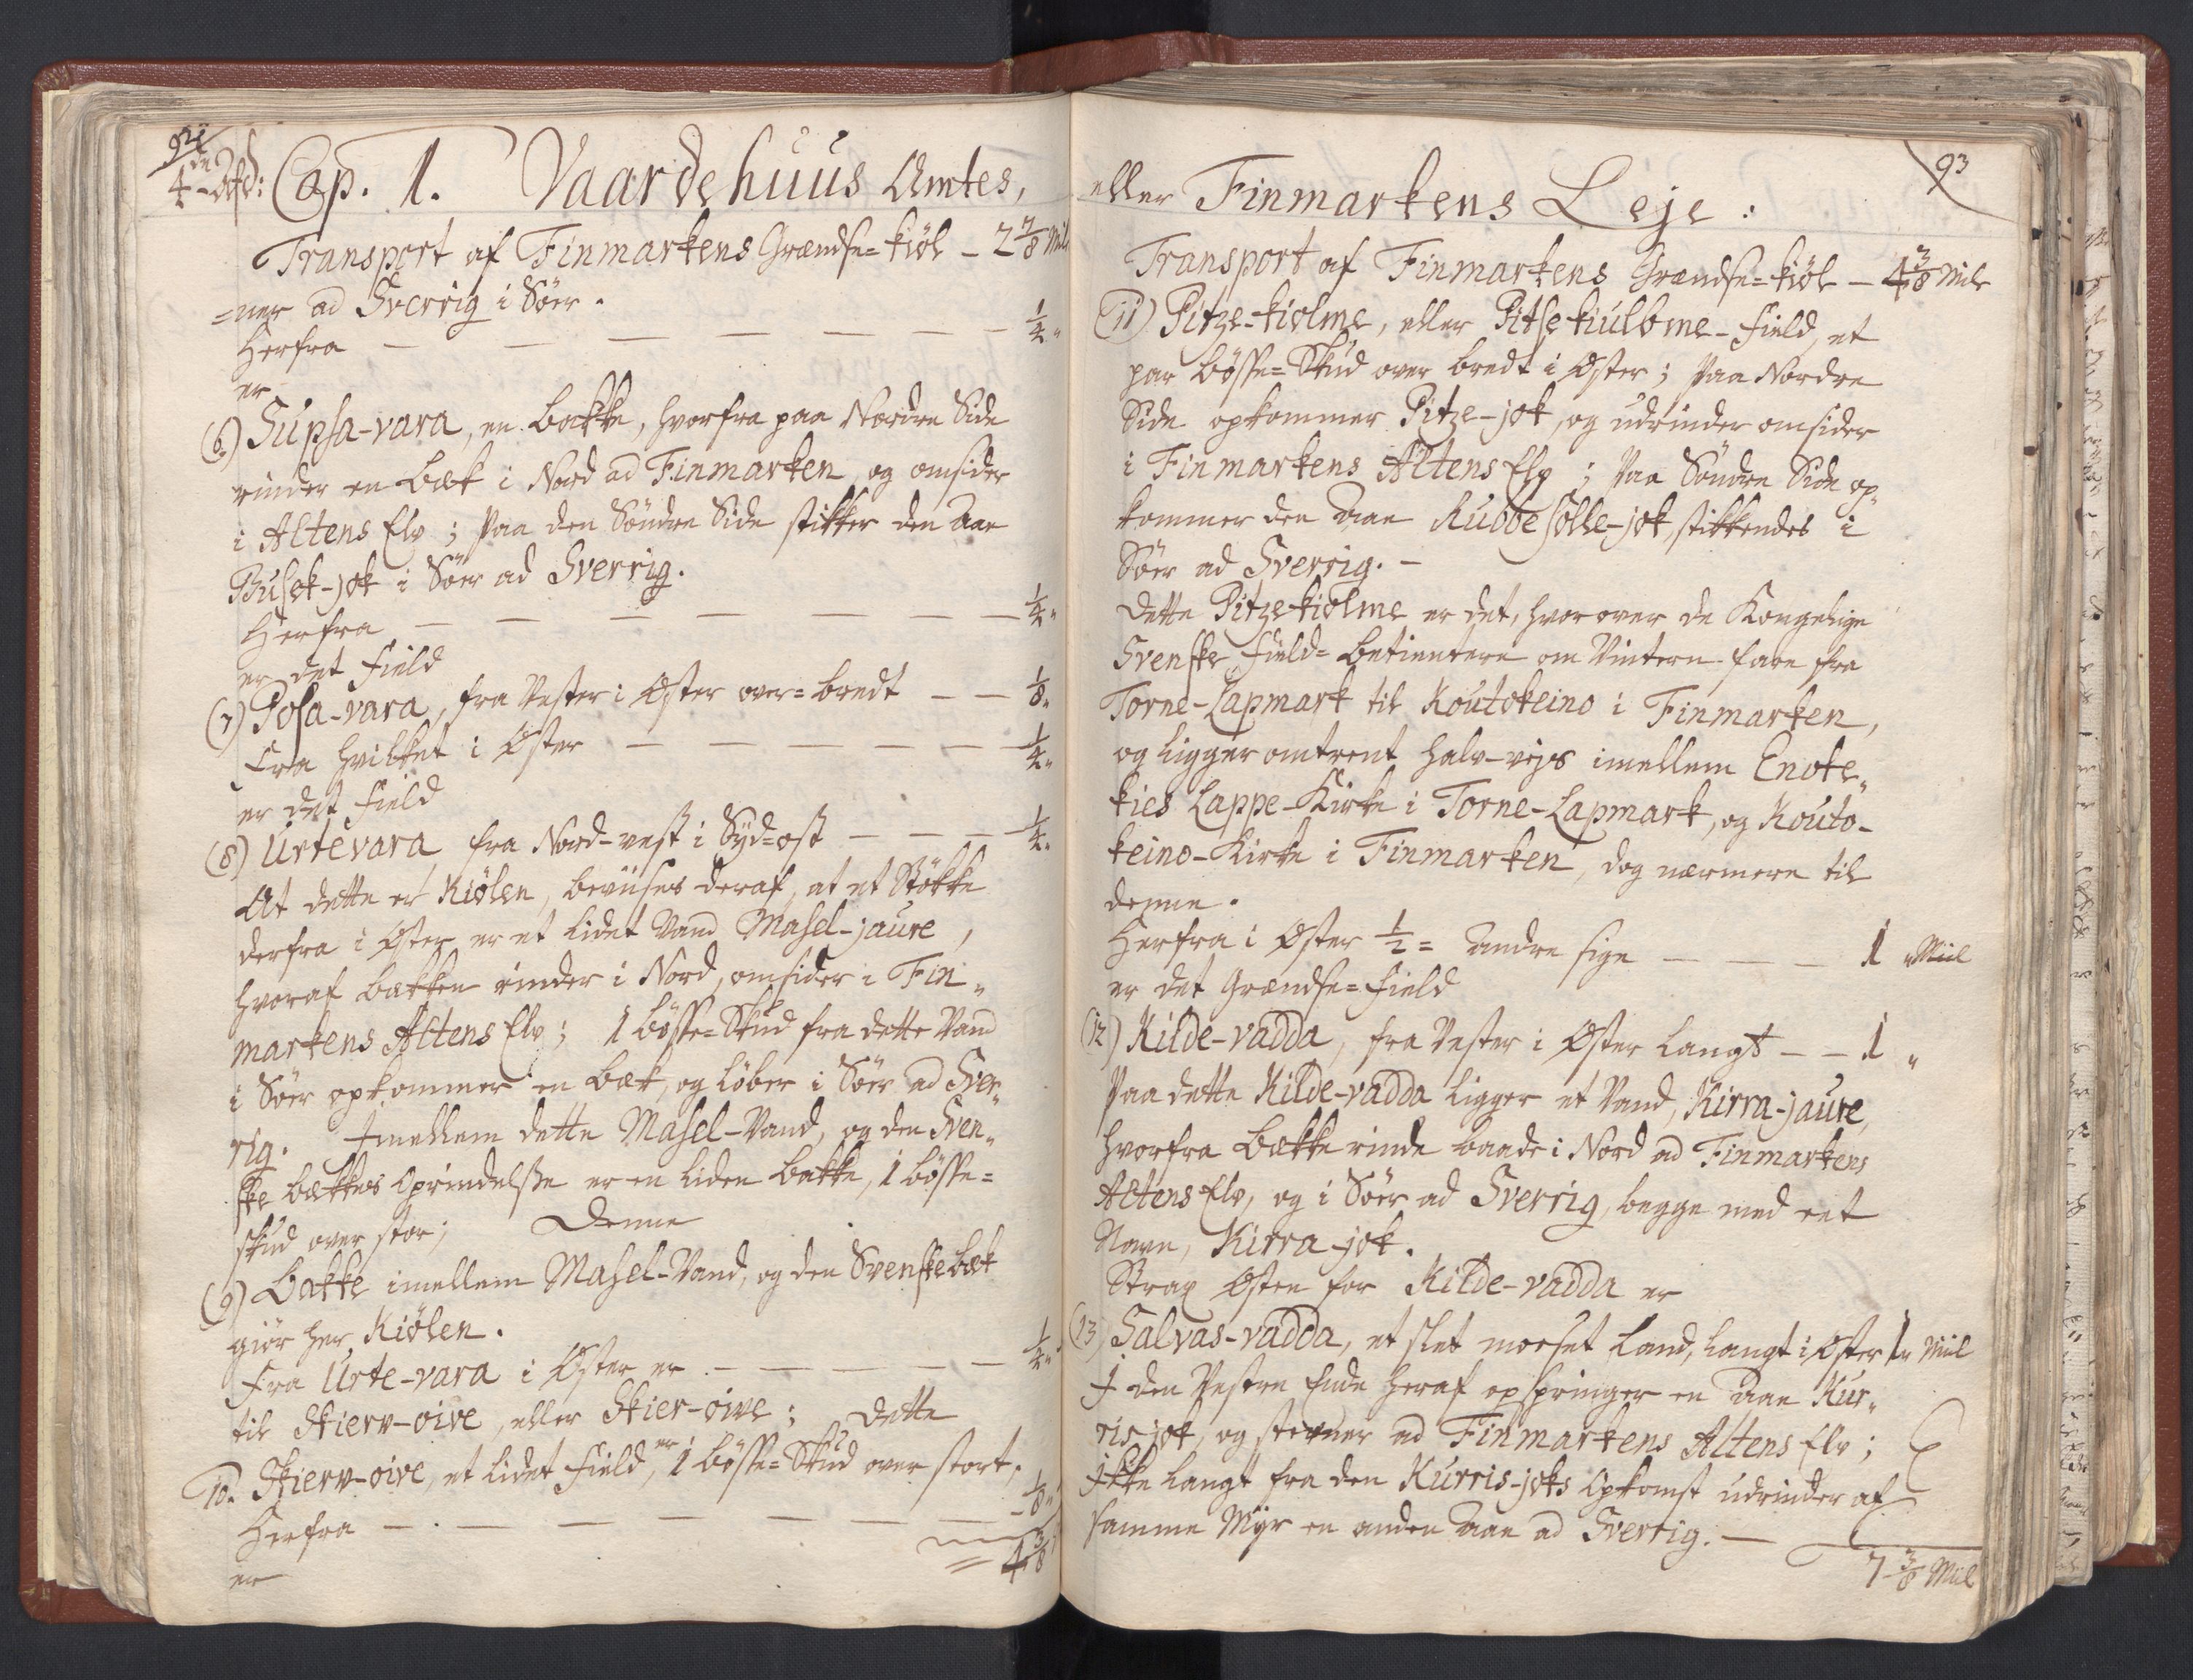 92
4de Afd: Cap. 1. Vaardehuus Amtes,
Transport af Finmarkens Grændse-kiøl - 2 7/8 Mil
=ner ad Sverrig i Søer.
Herfra - - - - - - 1/4 "
er
(6) Supsa-vara, en Bakke, hvorfra paa Nordre Side
rinder en Bæk i Nord ad Finmarken, og omsider
i Altens Elv; Paa den Søndre Side stikker den Aae
Busek-jok i Søer ad Sverrig.
Herfra - - - - - - 1/4 "
er det Field
(7) Posa-vara, fra Vester i Øster over-bredt - - 1/8 "
Fra hvilket i Øster - - - - - 1/4 "
er det Field
(8) Urtevara fra Nord-vest i Syd-ost - - - 1/4 "
At dette er Kiølen, beviises deraf, at et Støkke
derfra i Øster er et lidet Vand Masel-jaure,
hvoraf Bækken rinder i Nord, omsider i Fin„
markens Altens Elv; 1 Bøsse-Skud fra dette Vand
i Søer opkommer en Bæk, og løber i Søer ad Sver„
rig. Imellem dette Masel-Vand, og den Sven„
ske Bækkes Oprindelse er en liden Bakke, 1 Bøsse=
skud over stor; Denne
(9) Bakke imellem Masel-Vand, og den Svenske Bæk
giør her Kiølen.
Fra Urte-vara i Øster er - - - - - 1/2 "
til Skierv-oive, eller Skier-oive; Dette
10. Skierv-oive, et lidet Field, er 1 Bøsse-Skud over stort,
Herfra - - - - - - - 1/8 "
er
= 4 3/8
93
eller Finmarkens Leje:
Transport af Finmarkens Grændse-kiøl - 4 3/8 Mil
(11) Pitze-kiolme, eller Pitsekiulbme-Field, et
par Bøsse-Skud over bredt i Øster; Paa Nordre
Side opkommer Pitze-jok, og udrinder omsider
i Finmarkens Altens Elv; Paa Søndre Side op„
kommer den Aae Rubbesolle-jok, stikkendes i
Søer ad Sverrig. -
Dette Pitzekiolme er det, hvorover de Kongelige
Svenske Field-Betientere om Vintern fare fra
Torne-Lapmark til Koutokeino i Finmarken,
og ligger omtrent halv-vejs imellem Enote„
kies Lappe-Kirke i Torne-Lapmark, og Kouto-
keino-Kirke i Finmarken, dog nærmere til
denne.
Herfra i Øster 1/2 = Andre sige - - - 1 " Miil
er det Grændse-Field
(12) Kilde-vadda, fra Vester i Øster langt - - 1 "
Paa dette Kilde-vadda ligger et Vand, Kirra-jaure,
hvorfra Bække rinde baade i Nord ad Finmarkens
Altens Elv, og i Søer ad Sverrig, begge med eet
Navn, Kirra-jok.
Strax Østen for Kilde-vadda er
(13) Salvas-vadda, et slet moeset Land, langt i Øster 1 " Miil
I den Vestre Ende heraf opspringer en Aae Kur„
ris jok, og stevner ad Finmarkens Altens Elv;
Ikke langt fra den Kurris-joks Opkomst udrinder af
samme Myr en anden Aae ad Sverrig. -
7 3/8 Miil